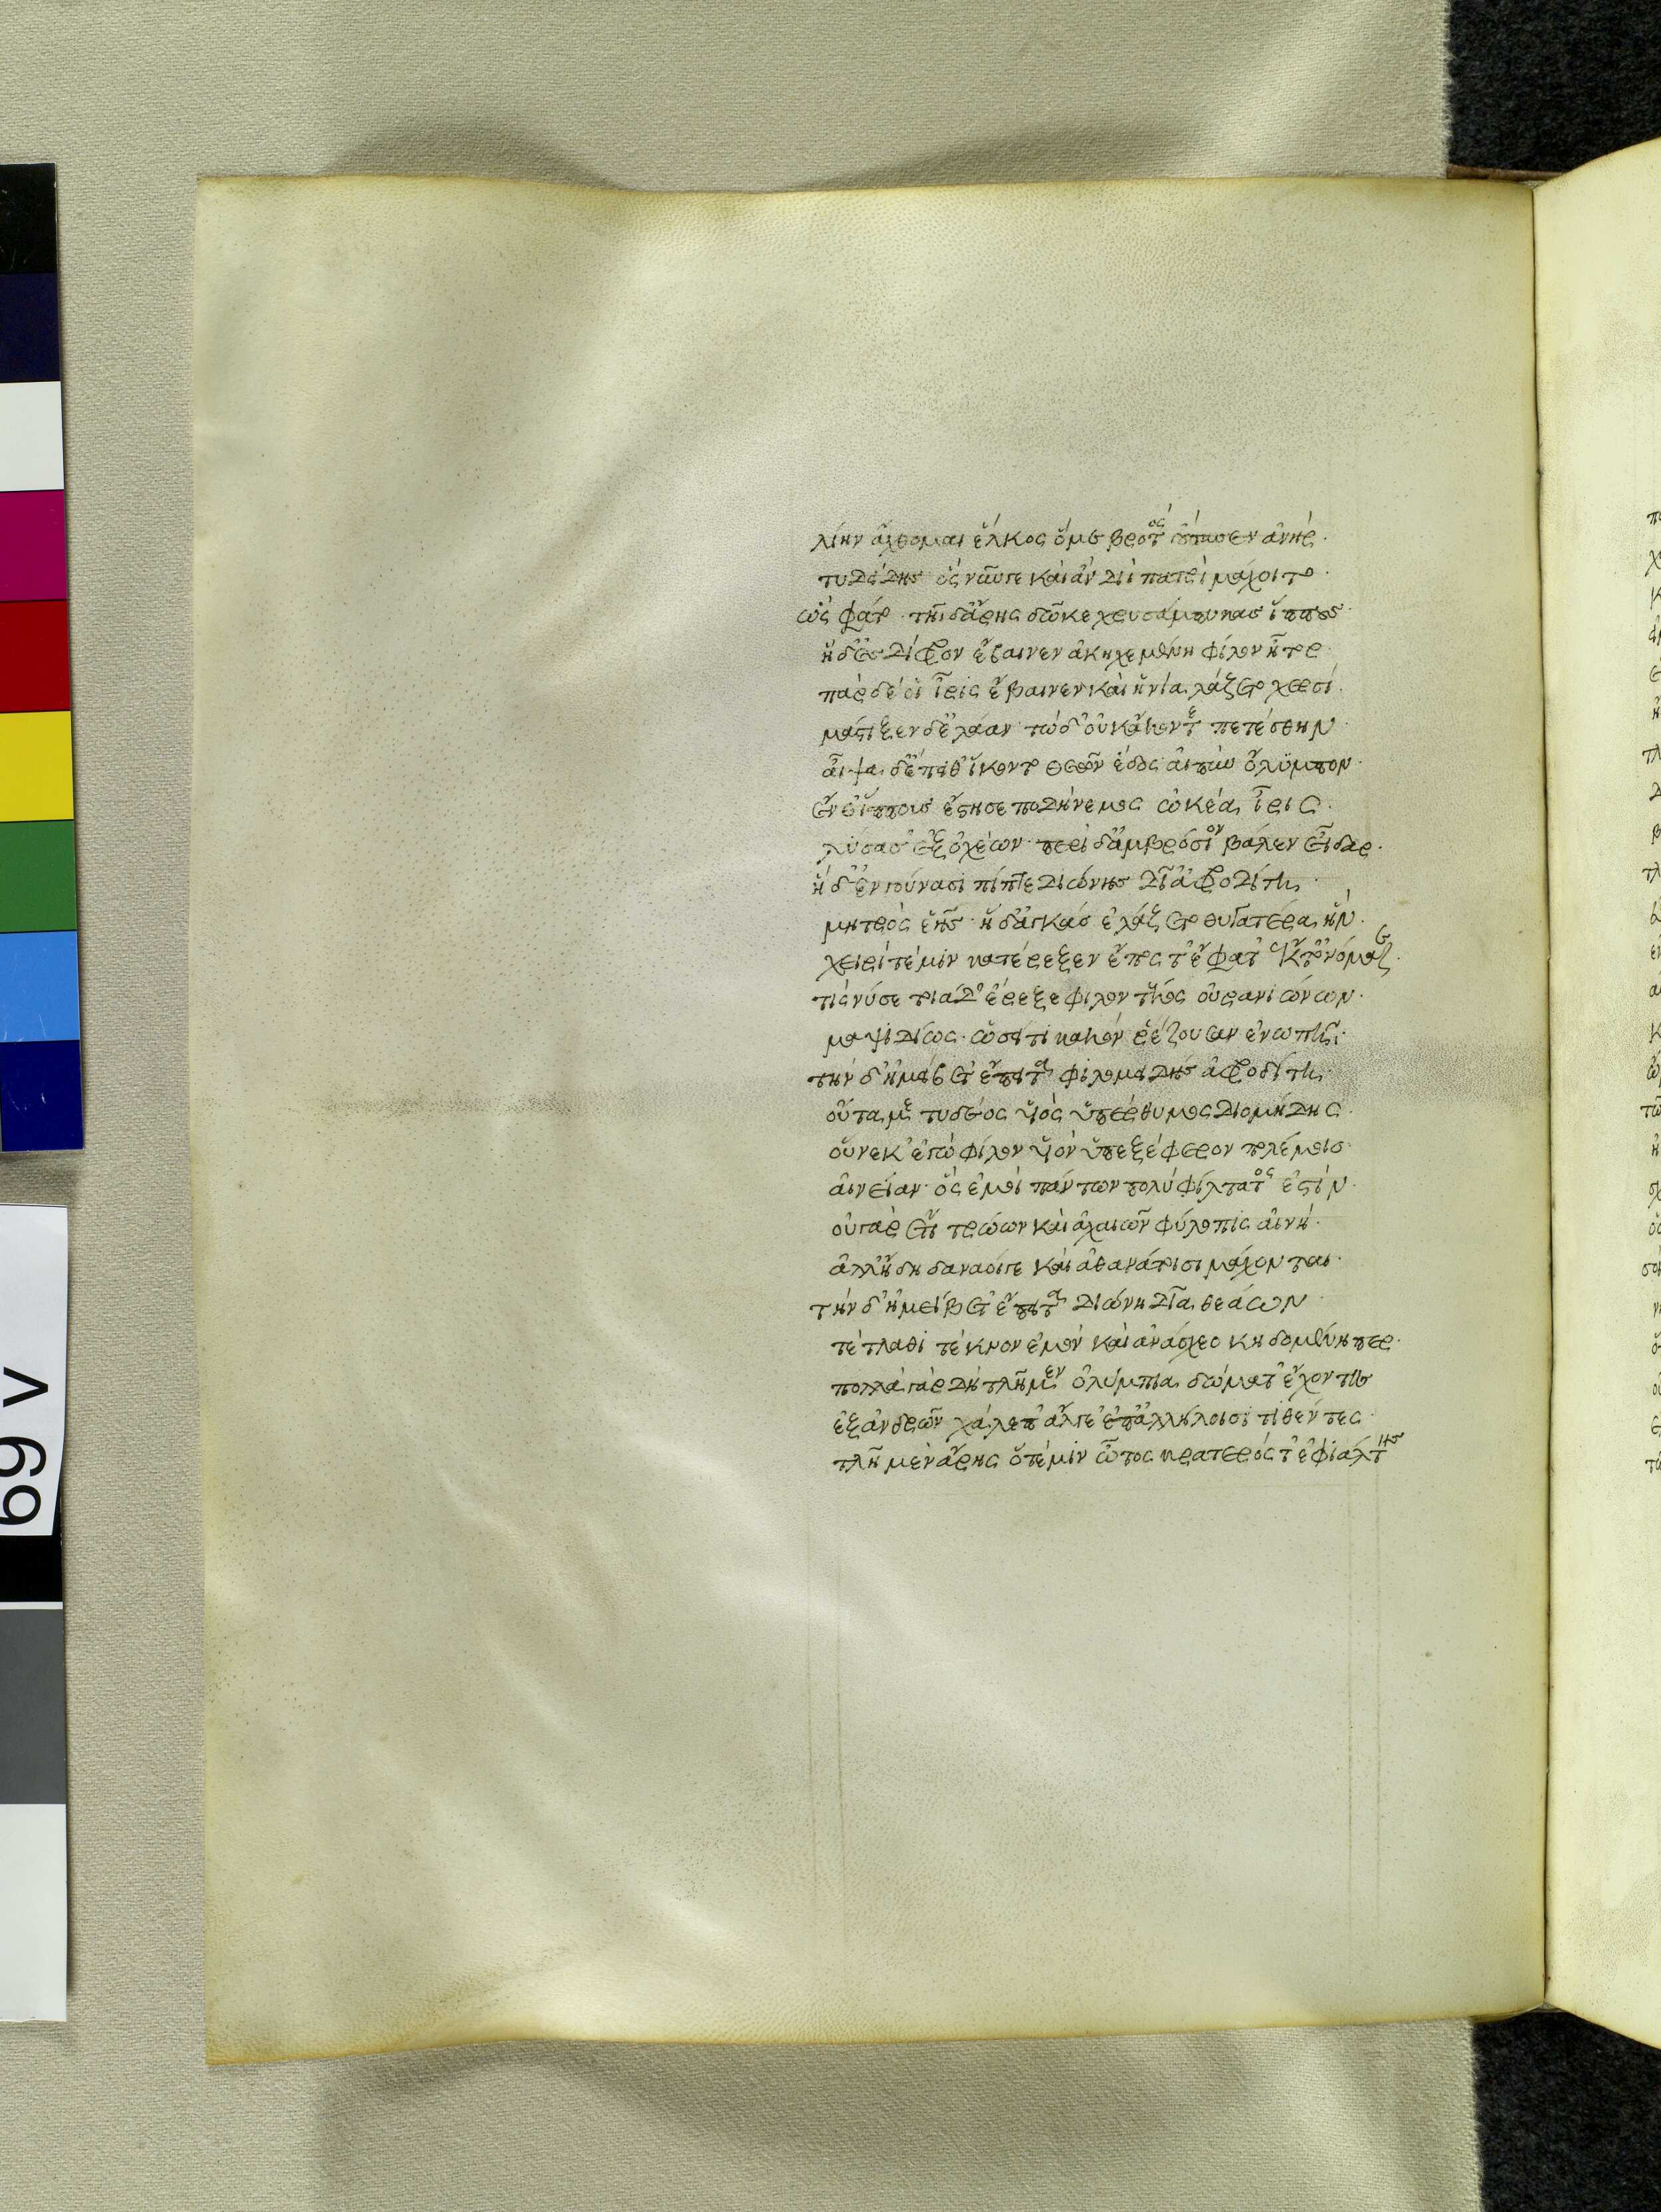 λίην ἄχθομαι ἕλκος ὅ με βροτὸς οὔτασεν ἀνήρ.
τυδείδης ὃς νῦν γε καὶ ἂν διὶ πατρὶ μάχοιτο.
ὣς φάτο. τῆι δ' ἄρης δῶκε χρυσάμπυκας ἵππους.
ἣ δ' ἐς δίφρον ἔβαινεν ἀκηχεμένη φίλον ἦτορ.
πὰρ δέ οἱ ἶρις ἔβαινεν καὶ ἡνία λάζετο χερσί.
μάστιξεν δ' ἐλάαν τὼ δ' οὐκ ἄκοντε πετέσθην.
αἶψα δ' ἔπειθ' ἵκοντο θεῶν ἕδος αἰπὺν ὄλυμπον.
ἔνθ' ἵππους ἔστησε ποδήνεμος ὠκέα ἶρις.
λύσασ' ἐξ ὀχέων. περὶ δ' ἀμβρόσιον βάλεν εἶδαρ.
ἣ δ' ἐν γούνασι πίπτε διώνης δῖ' ἀφροδίτη.
μητρὸς ἑῆς. ἣ δ' ἀγκὰς ἐλάζετο θυγατέρα ἥν.
χειρί τέ μιν κατέρεξεν ἔπος τ' ἔφατ' ἔκ τ' ὀνόμαζε.
τίς νύ σε τοιάδ' ἔρεξε φίλον τέκος οὐρανιώνων.
μαψιδίως. ὡς εἴ τι κακὸν ῥέζουσαν ἐνωπῆι.
τὴν δ' ἠμείβετ' ἔπειτα φιλομειδὴς ἀφροδίτη.
οὖτά με τυδέος υἱὸς ὑπέρθυμος διομήδης.
οὕνεκ' ἐγὼ φίλον υἱὸν ὑπεξέφερον πολέμοιο.
αἰνείαν. ὃς ἐμοὶ πάντων πολὺ φίλτατος ἐστίν.
οὐ γὰρ ἔτι τρώων καὶ ἀχαιῶν φύλοπις αἰνή.
ἀλλ' ἤδη δαναοί γε καὶ ἀθανάτοισι μάχονται.
τὴν δ' ἠμείβετ' ἔπειτα διώνη δῖα θεάων.
τέτλαθι τέκνον ἐμὸν καὶ ἀνάσχεο κηδομένη περ.
πολλοὶ γὰρ δὴ τλῆμεν ὀλύμπια δώματ' ἔχοντες
ἐξ ἀνδρῶν χαλέπ' ἄλγε' ἐπ' ἀλλήλοισι τιθέντες.
τλῆ μὲν ἄρης ὅτέ μιν ὦτος κρατερός τ' ἐφιάλτης